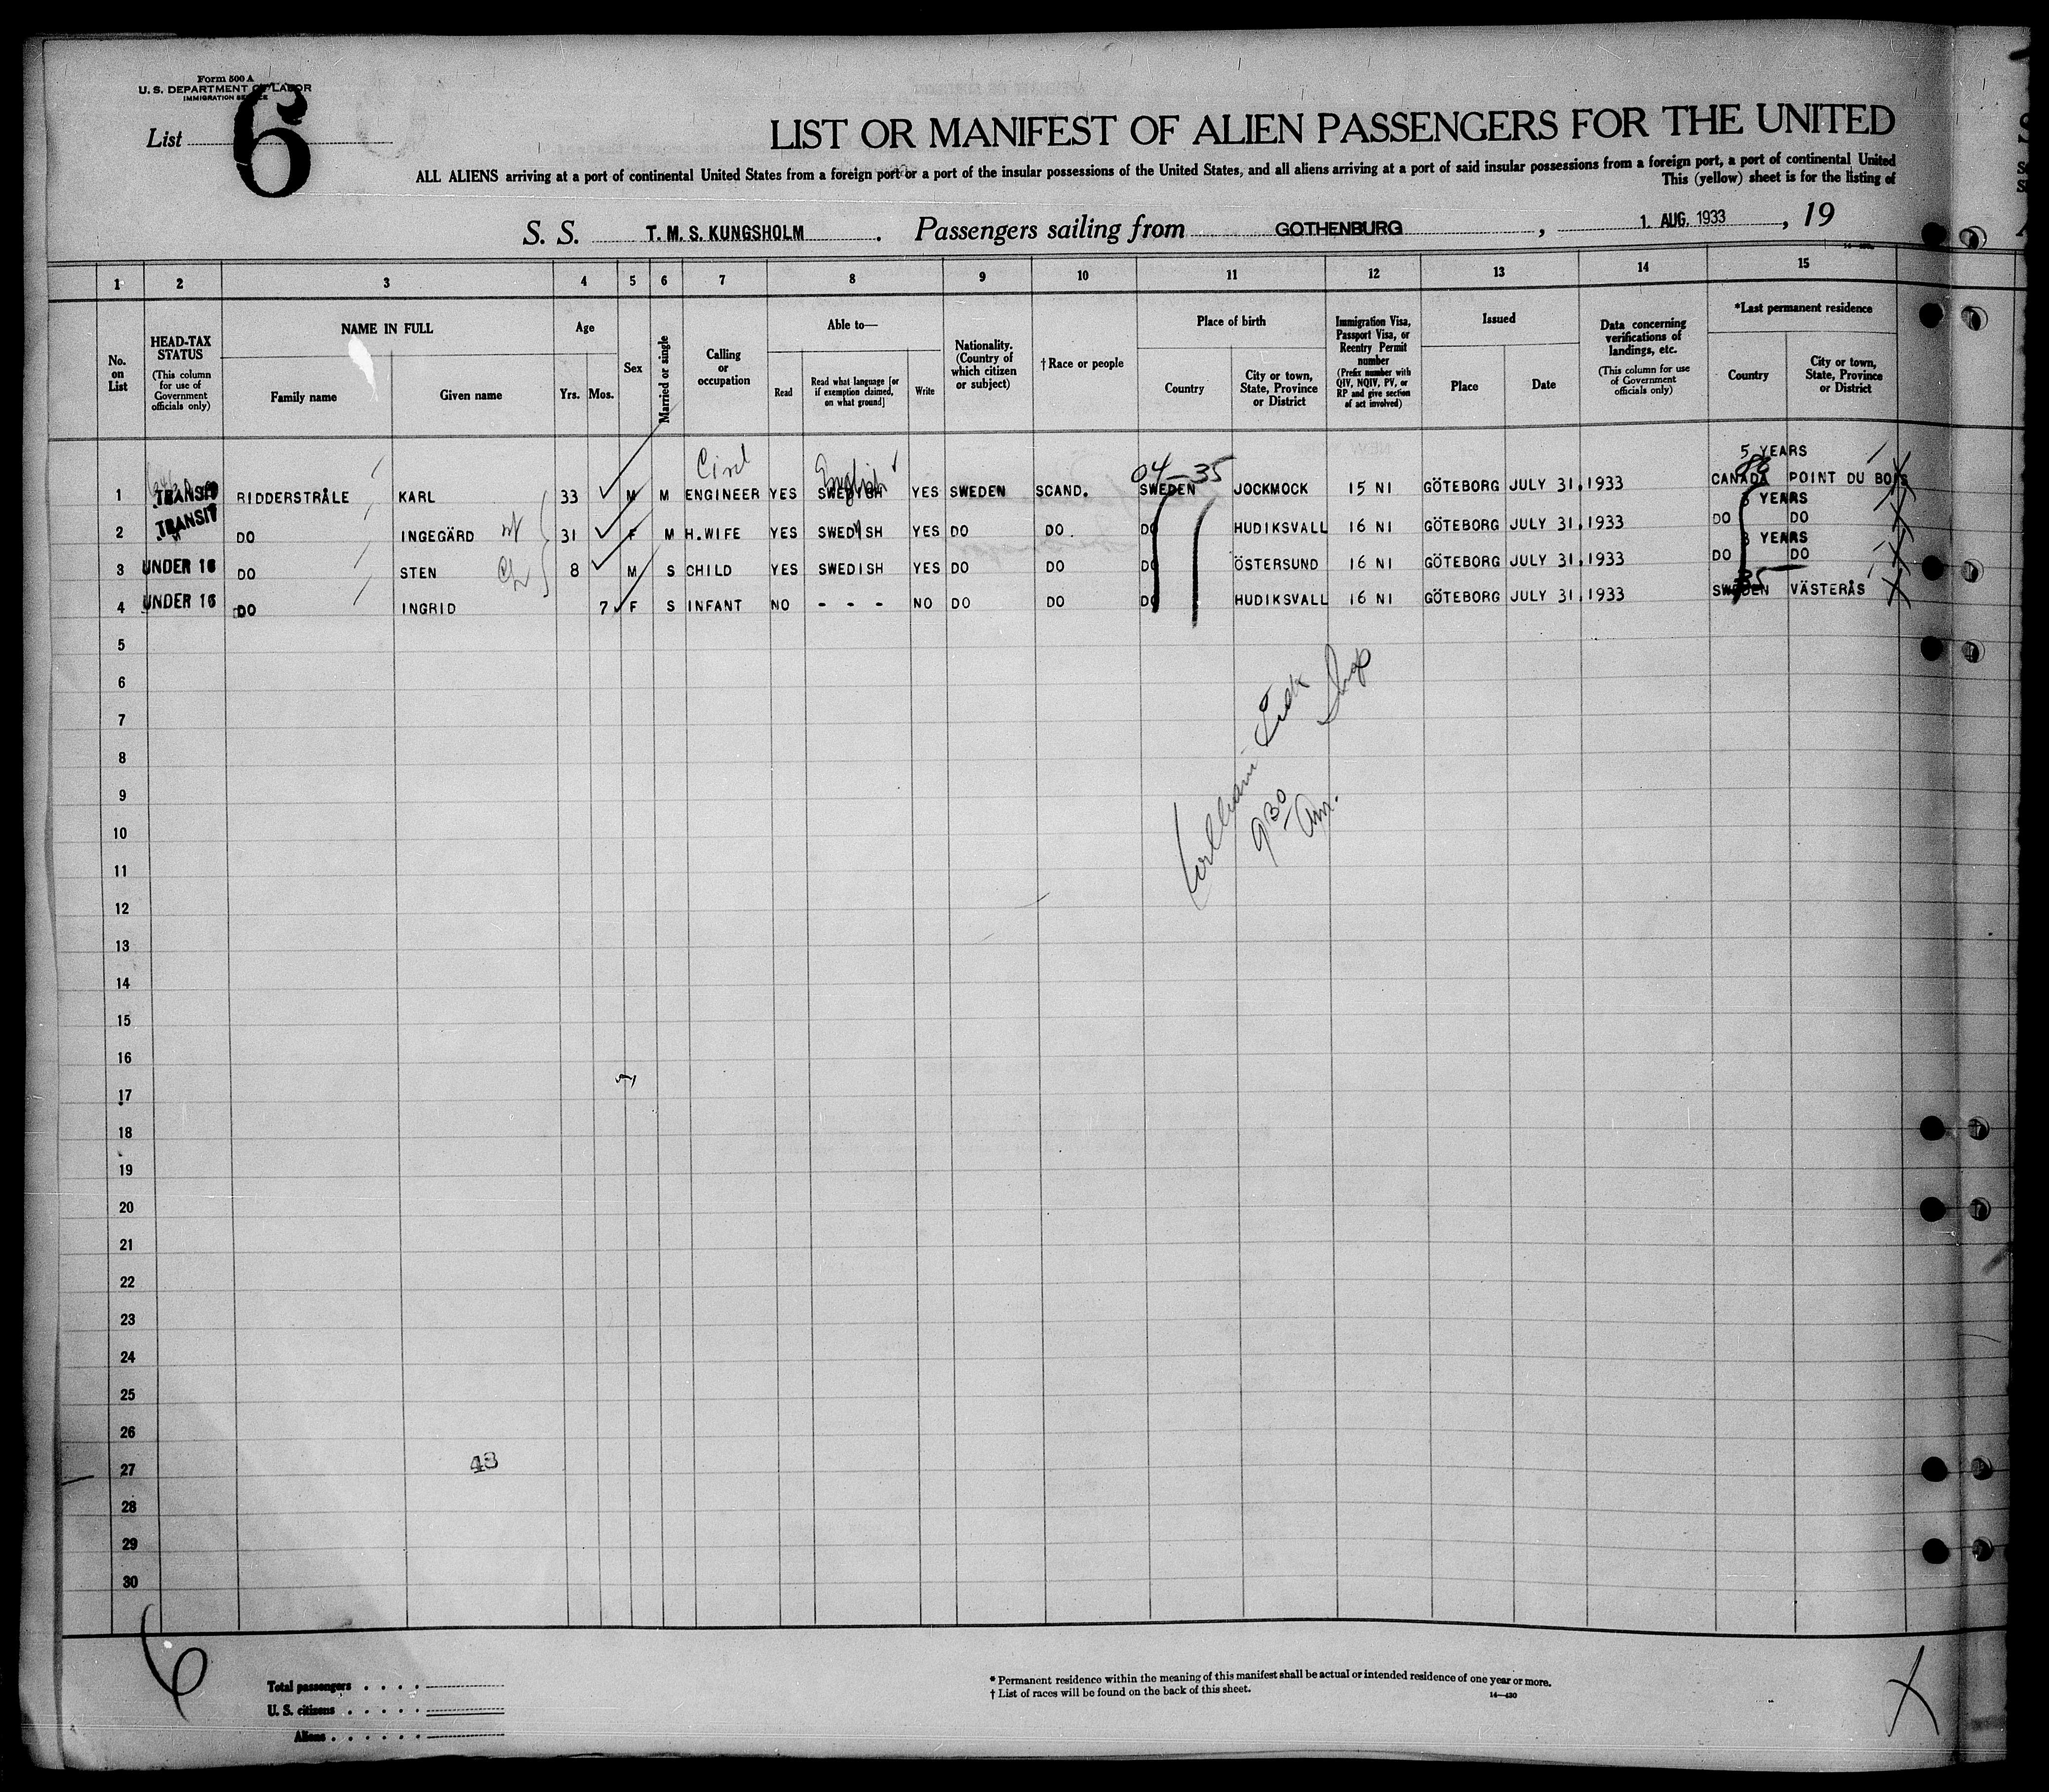 Form 500 A
U. S. DEPARTMENT OF LABOR
IMMIGRATION SERVICE
List 6
LIST OR MANIFEST OF ALIEN PASSENGERS FOR THE UNITED
ALL ALIENS arriving at a port of continental United States from a foreign port or a port of the insular possessions of the United States, and all aliens arriving at a port of said insular possessions from a foreign port, a port of continental United
This (yellow) sheet is for the listing of
S. S. T. M. S. KUNGSHOLM . Passengers sailing from GOTHENBURG , 1. AUG. 1933 , 19
1 2 3 4 5 6 7 8 9 10 11 12 13 14 15
No. on List
HEAD-TAX STATUS (This column for use of Government officials only)
NAME IN FULL
Family name
Given name
Age
Yrs. Mos.
Sex
Married or single
Calling or occupation
Able to—
Read
Read what language [or if exemption claimed, on what ground]
Write
Nationality. (Country of which citizen or subject)
†Race or people
Place of birth
Country
City or town, State, Province or District
Immigration Visa, Passport Visa, or Reentry Permit number (Prefix number with QIV, NQIV, PV, or RP and give section of act involved)
Issued
Place
Date
Data concerning verifications of landings, etc. (This column for use of Government officials only)
*Last permanent residence
Country
City or town, State, Province or District
Civil English 04-35 5 YEARS
1 TRANSIT RIDDERSTRÅLE KARL 33 M M ENGINEER YES SWEDISH YES SWEDEN SCAND. SWEDEN JOCKMOCK 15 NI GÖTEBORG JULY 31, 1933 CANADA POINT DU BOIS
YEARS
2 TRANSIT DO INGEGÄRD wf 31 F M H.WIFE YES SWEDISH YES DO DO. DO HUDIKSVALL 16 NI GÖTEBORG JULY 31, 1933 DO DO
YEARS
3 UNDER 16 DO STEN Ch 8 M S CHILD YES SWEDISH YES DO DO DO ÖSTERSUND 16 NI GÖTEBORG JULY 31, 1933 DO DO
35
4 UNDER 16 DO INGRID 7 F S INFANT NO - - - NO DO DO DO HUDIKSVALL 16 NI GÖTEBORG JULY 31, 1933 SWEDEN VÄSTERÅS
5
6
7
8
9
10
11
12
13
14
15
16
17
18
19
20
21
22
23
24
25
26
27
28
29
30
William
9 30 Am.
48
6
Total passengers
U. S. citizens
Aliens
* Permanent residence within the meaning of this manifest shall be actual or intended residence of one year or more.
† List of races will be found on the back of this sheet.
14—430
X